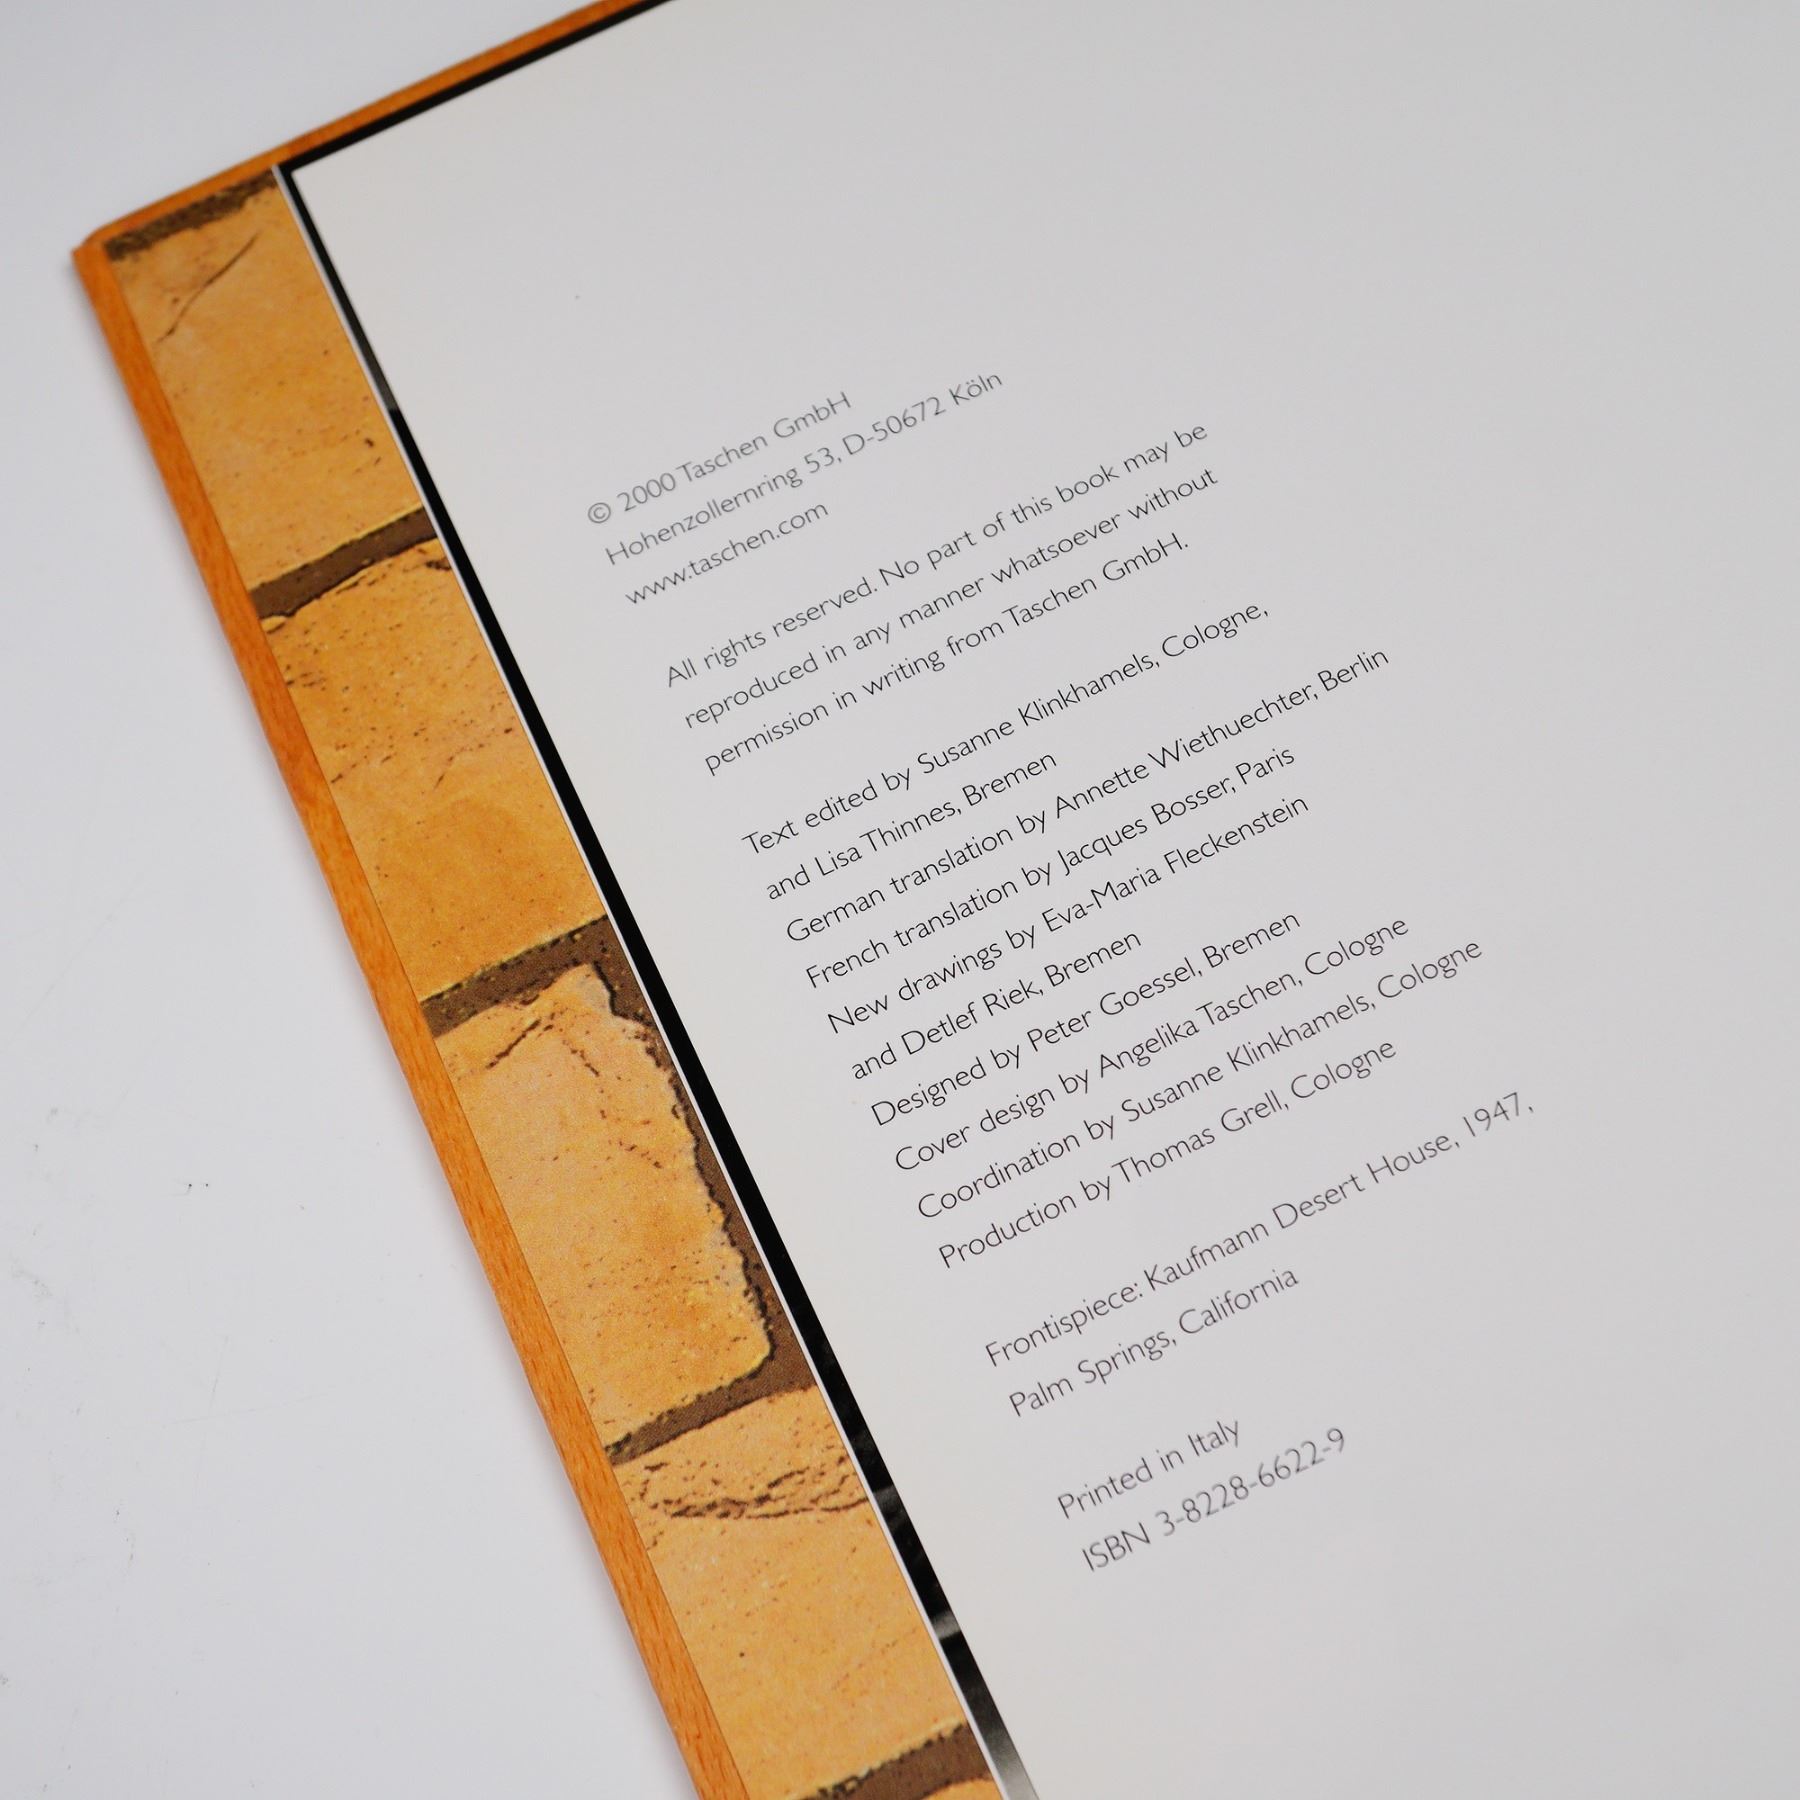 © 2000 Taschen GmbH
Hohenzollernring 53, D-50672 Köln
www.taschen.com
All rights reserved. No part of this book may be
reproduced in any manner whatsoever without
permission in writing from Taschen GmbH.
Text edited by Susanne Klinkhamels, Cologne,
and Lisa Thinnes, Bremen
German translation by Annette Wiethuechter, Berlin
French translation by Jacques Bosser, Paris
New drawings by Eva-Maria Fleckenstein
and Detlef Riek, Bremen
Designed by Peter Goessel, Bremen
Cover design by Angelika Taschen, Cologne
Coordination by Susanne Klinkhamels, Cologne
Production by Thomas Grell, Cologne
Frontispiece: Kaufmann Desert House, 1947,
Palm Springs, California
Printed in Italy
ISBN 3-8228-6622-9